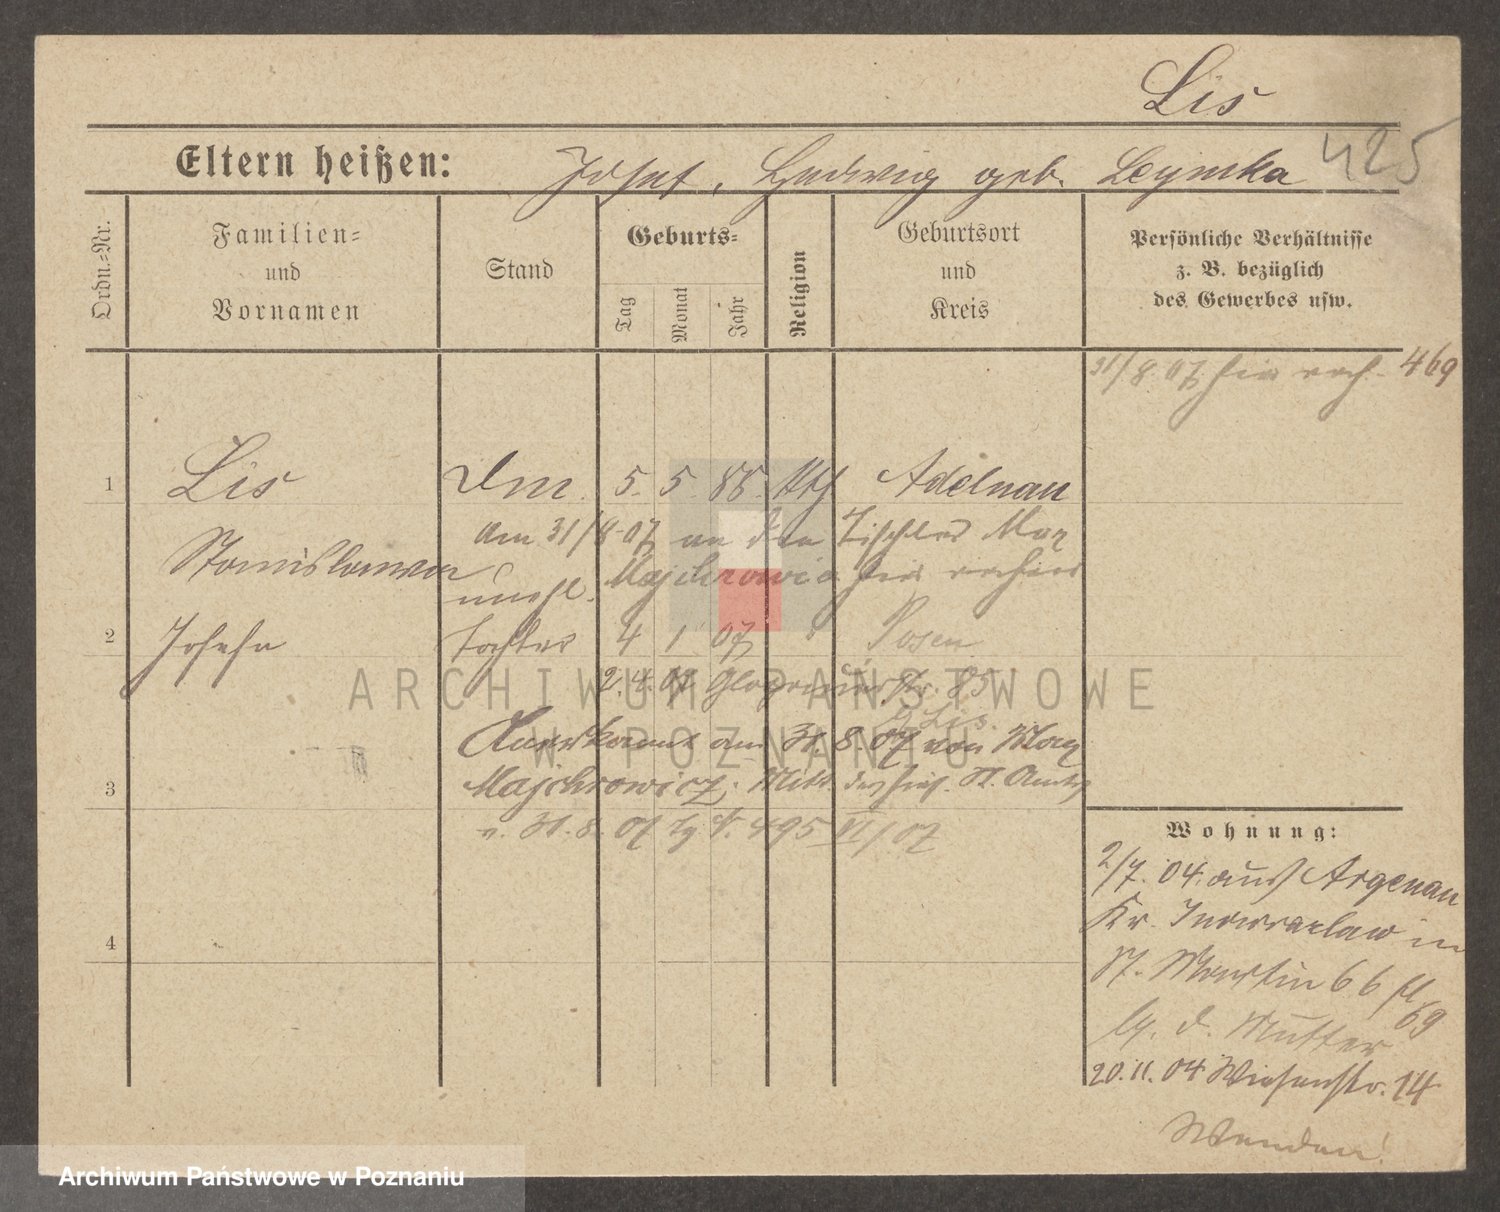 Lis
425
Eltern heißen: Josef, Hedwig geb.
Ordn.=Nr.
Familien=
und
Vornamen
Stand
Geburts=
Tag
Monat
Jahr
Religion
Geburtsort
und
Kreis
Persönliche Verhältnisse
z. B. bezüglich
des Gewerbes usw.
31/8 07 hier 469
1 Lis Dm. 5. 5. kth Adelnau
Am 31/8 07 an den Tischler Max
Stanislawa
unehl. Majchrowicz hier
2 Josefa Tochter 4 1 07 " Posen
2. 4. 07 Glogauerstr. 85
b. Lis.
Anerkannt am 31. 8. 07 von Max
3 Majchrowicz. Mitt. des hies. St. Amts
v. 31. 8. 07 Tg 495 VI/07
4
Wohnung:
2/7. 04. aus Argenau
Kr. Inowrazlaw in
St. Martin 66
69
b. d. Mutter
20. 11. 04 Wiesenstr. 14
Wenden!
ARCHIWUM PAŃSTWOWE
W POZNANIU
Archiwum Państwowe w Poznaniu